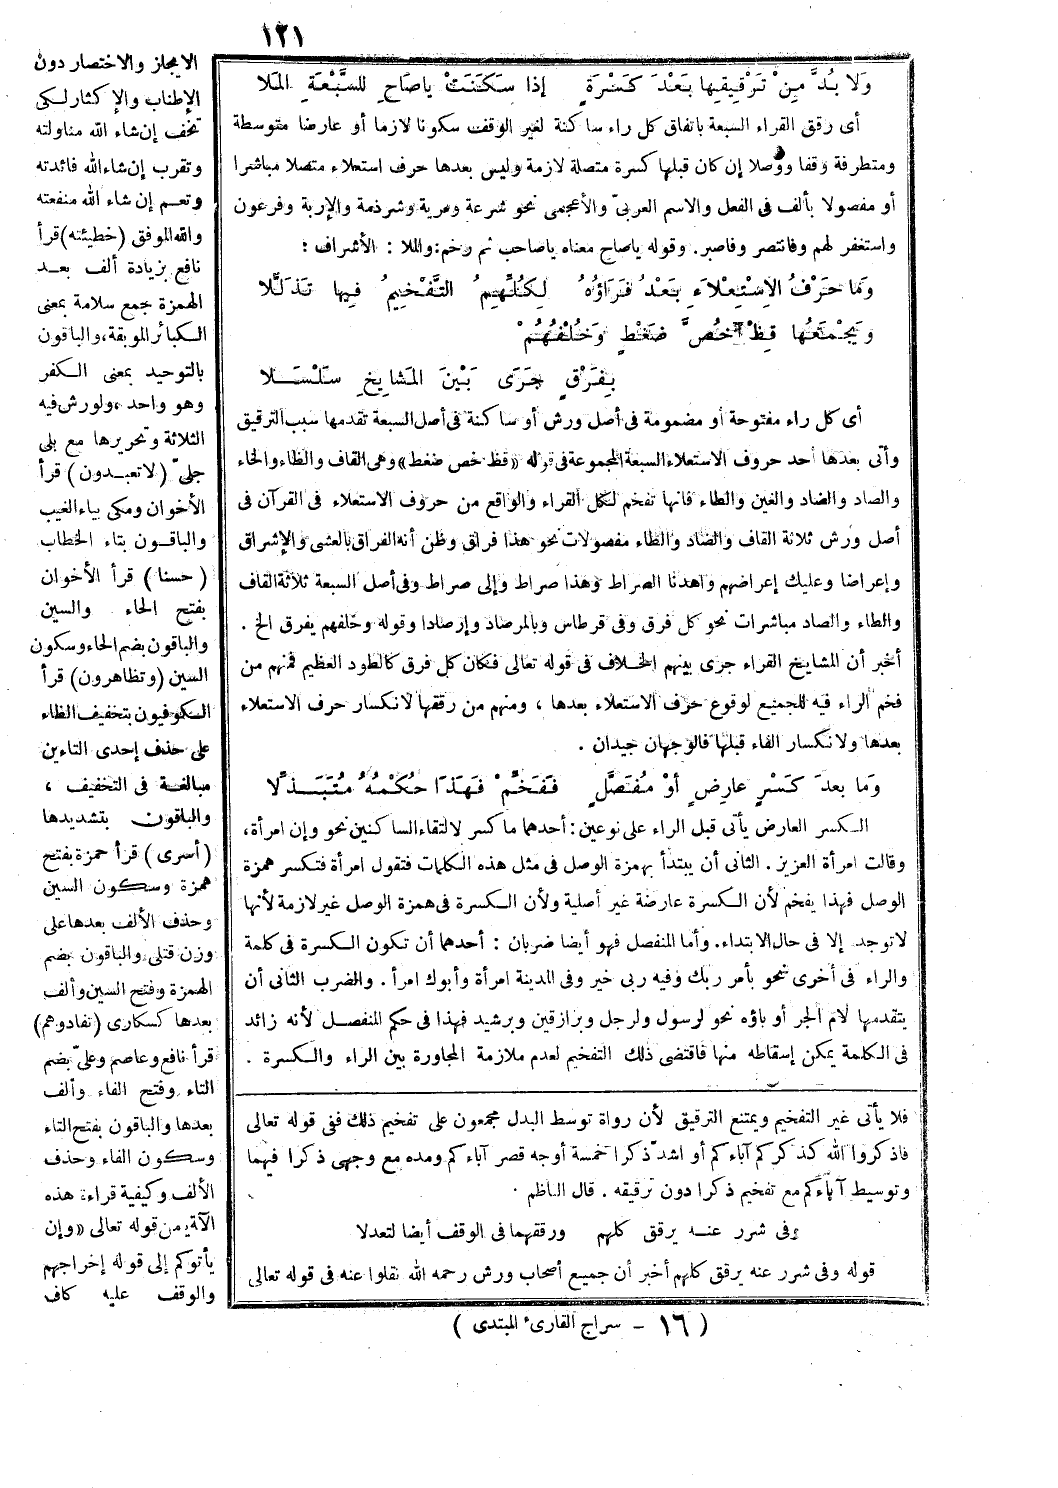 ١٢١
وَلَا بُدَّ مِنْ تَرْقِيقِهَا بَعْدَ كَسْرَةٍ إذا سَكَنَتْ ياصَاحِ لِلسَّبْعَةِ المَلَا
أى رقق القراء السبعة باتفاق كل راء ساكنة لغير الوقف سكونا لازما أو عارضا متوسطة
ومتطرفة وقفا ووصلا إن كان قبلها كسرة متصلة لازمة وليس بعدها حرف استعلاء متصلا مباشرا
أو مفصولا بألف فى الفعل والاسم العربىّ والأعجمى نحو شرعة ومرية وشرذمة والإربة وفرعون
واستغفر لهم وفانتصر وفاصبر. وقوله ياصاح معناه ياصاحب ثم رخم: والملا : الأشراف :
وَمَا حَرْفُ الِاسْتِعْلَاءِ بَعْدُ فَرَاؤُهُ لِكُلِّهِمُ التَّفْخِيمُ فِيهَا تَذَلَّلَا
وَيَجْمَعُهَا قِظْ خُصَّ ضَغْطٍ وَخُلْفُهُمْ
بِفِرْقٍ جَرَى بَيْنَ المَشَايِخِ سَلْسَلَا
أى كل راء مفتوحة أو مضمومة فى أصل ورش أو ساكنة فى أصل السبعة تقدمها سبب الترقيق
وأتى بعدها أحد حروف الاستعلاء السبعة المجموعة فى قوله «قظ خص ضغط» وهى القاف والظاء والخاء
والصاد والضاد والغين والطاء فانها تفخم لكل القراء والواقع من حروف الاستعلاء فى القرآن فى
أصل ورش ثلاثة القاف والضاد والطاء مفصولات نحو هذا فراق وظن أنه الفراق بالعشى والإشراق
وإعراضا وعليك إعراضهم واهدنا الصراط وهذا صراط وإلى صراط وفى أصل السبعة ثلاثة القاف
والطاء والصاد مباشرات نحو كل فرق وفى قرطاس وبالمرصاد وإرصادا وقوله وخلفهم بفرق الخ .
أخبر أن المشايخ القراء جرى بينهم الخلاف فى قوله تعالى فكان كل فرق كالطود العظيم فمنهم من
فخم الراء فيه للجميع لوقوع حرف الاستعلاء بعدها ، ومنهم من رققها لانكسار حرف الاستعلاء
بعدها ولانكسار الفاء قبلها فالوجهان جيدان .
وَمَا بعدَ كَسْرٍ عارِضٍ أوْ مُفَصَّلٍ فَفَخِّمْ فَهَذَا حُكْمُهُ مُتَبَذِّلًا
الكسر العارض يأتى قبل الراء على نوعين : أحدهما ما كسر لالتقاء الساكنين نحو وإن امرأة،
وقالت امرأة العزيز . الثانى أن يبتدأ بهمزة الوصل فى مثل هذه الكلمات فتقول امرأة فتكسر همزة
الوصل فهذا يفخم لأن الكسرة عارضة غير أصلية ولأن الكسرة فى همزة الوصل غير لازمة لأنها
لا توجد إلا فى حال الابتداء. وأما المنفصل فهو أيضا ضربان : أحدهما أن تكون الكسرة فى كلمة
والراء فى أخرى نحو بأمر ربك وفيه ربى خير وفى المدينة امرأة وأبوك امرأ . والضرب الثانى أن
يتقدمها لام الجر أو باؤه نحو لرسول ولرجل وبرازقين وبرشيد فهذا فى حكم المنفصل لأنه زائد
فى الكلمة يمكن إسقاطه منها فاقتضى ذلك التفخيم لعدم ملازمة المجاورة بين الراء والكسرة .
فلا يأتى غير التفخيم ويمتنع الترقيق لأن رواة توسط البدل مجمعون على تفخيم ذلك ففى قوله تعالى
فاذكروا الله كذكركم آباءكم أو اشدّ ذكرا خمسة أوجه قصر آباءكم ومده مع وجهى ذكرا فيهما
وتوسيط آباءكم مع تفخيم ذكرا دون ترقيقه . قال الناظم
وفى شرر عنه يرقق كلهم ورققهما فى الوقف أيضا لتعدلا
قوله وفى شرر عنه يرقق كلهم أخبر أن جميع أصحاب ورش رحمه الله نقلوا عنه فى قوله تعالى
الايجاز والاختصار دون
الإطناب والإكثار لكى
تخف إن شاء الله مناولته
وتقرب إن شاء الله فائدته
وتعم إن شاء الله منفعته
والله الموفق (خطيئته) قرأ
نافع بزيادة ألف بعد
الهمزة جمع سلامة بمعنى
الكبائر الموبقة، والباقون
بالتوحيد بمعنى الكفر
وهو واحد، ولورش فيه
الثلاثة وتحريرها مع بلى
جلىّ (لاتعبدون) قرأ
الأخوان ومكى بياء الغيب
والباقون بتاء الخطاب
(حسنا) قرأ الأخوان
بفتح الحاء والسين
والباقون بضم الحاء وسكون
السين (وتظاهرون) قرأ
الكوفيون بتخفيف الظاء
على حذف إحدى التاءين
مبالغة فى التخفيف ،
والباقون بتشديدها
(أسرى) قرأ حمزة بفتح
همزة وسكون السين
وحذف الألف بعدها على
وزن قتلى والباقون بضم
الهمزة وفتح السين وألف
بعدها كسكارى (تفادوهم)
قرأ نافع وعاصم وعلىّ بضم
التاء وفتح الفاء وألف
بعدها والباقون بفتح التاء
وسكون الفاء وحذف
الألف وكيفية قراءة هذه
الآية من قوله تعالى «وإن
يأتوكم إلى قوله إخراجهم
والوقف عليه كاف
( ١٦ - سراج القارئ المبتدى )